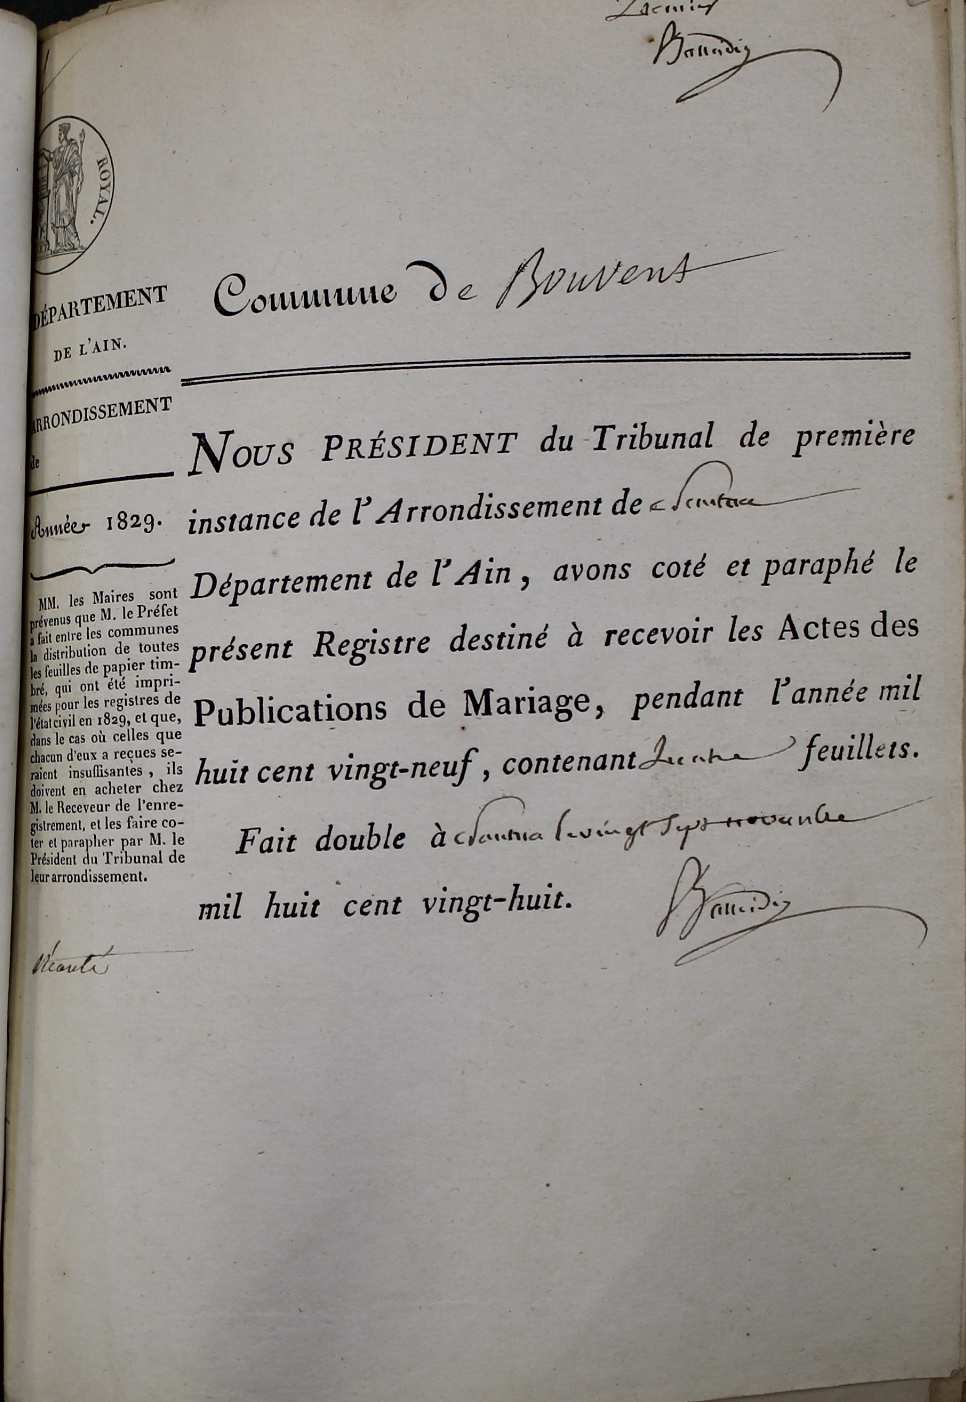 ROYAL.
DÉPARTEMENT
DE L'AIN.
ARRONDISSEMENT
de
Année 1829.
MM. les Maires sont
prévenus que M. le Préfet
a fait entre les communes
la distribution de toutes
les feuilles de papier tim-
bré, qui ont été impri-
mées pour les registres de
l'état civil en 1829, et que,
dans le cas où celles que
chacun d'eux a reçues se-
raient insuffisantes, ils
doivent en acheter chez
M. le Receveur de l'enre-
gistrement, et les faire co-
ter et parapher par M. le
Président du Tribunal de
leur arrondissement.
Commune de Bouvent
NOUS PRÉSIDENT du Tribunal de première
instance de l'Arrondissement de Nantua
Département de l'Ain, avons coté et paraphé le
présent Registre destiné à recevoir les Actes des
Publications de Mariage, pendant l'année mil
huit cent vingt-neuf, contenant quatre feuillets.
Fait double à Nantua le vingt sept novembre
mil huit cent vingt-huit.